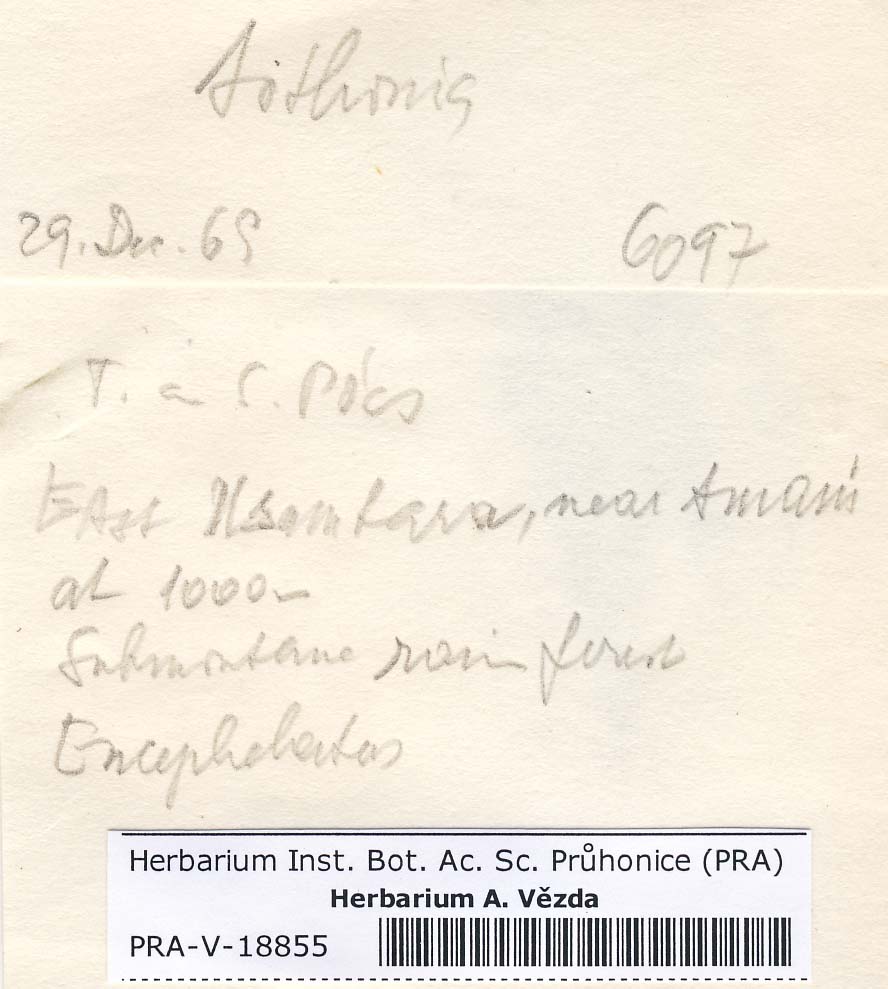 Aothonia
29. Dec. 69 6097
T. a S. Pócs
East Usambara, near Amani
at 1000 m
Submontane rain forest
Encephalartos
Herbarium Inst. Bot. Ac. Sc. Průhonice (PRA)
Herbarium A. Vězda
PRA-V-18855